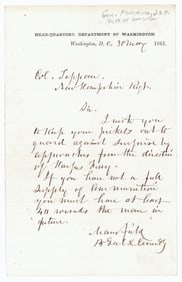 HEAD-QUARTERS, DEPARTMENT OF WASHINGTON,
Washington, D. C., 30 May 1861.
Col. Tappan
New Hampshire Regt
Sir
I wish you
to keep your pickets out to
guard against surprise by
approaches from the direction
of Harpers Ferry
If you have not a full
supply of ammunition
you must have at least
40 rounds the man in
future.
Mansfield